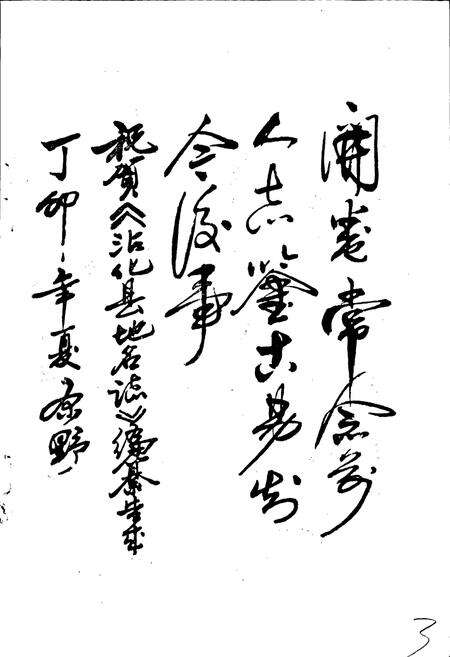 開卷常念前
人志鑒古易知
今後事
祝賀《沾化县地名誌》编纂告成
丁卯年夏 野
3